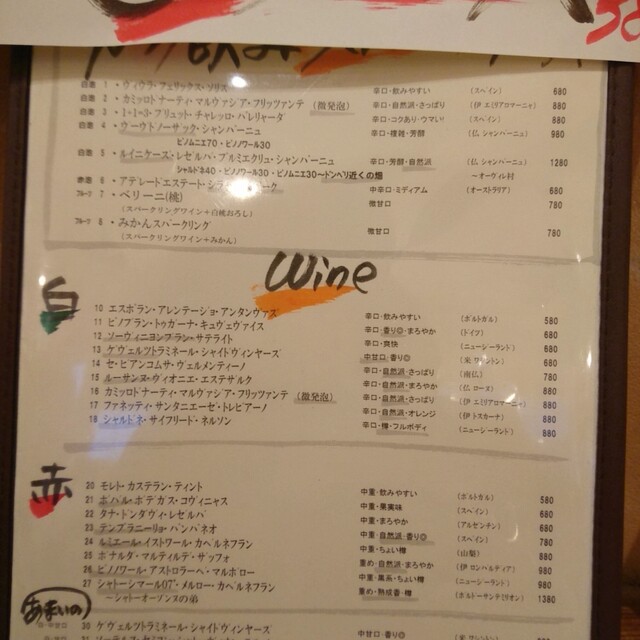 白泡 1 ・ヴィウラ・フェリックス・ソリス 辛口・飲みやすい (スペイン) 680
白泡 2 ・カミッロトナーティ・マルヴァシア・フリッツアンテ (微発泡) 辛口・自然派・さっぱり (伊 エミリアロマーニャ) 880
白泡 3 ・1+1=3・ブリュット・チャレッロ・パレリャーダ 辛口・コクあり・ウマい! (スペイン) 880
白泡 4 ・ウーウドノーサック・シャンパーニュ 辛口・複雑・芳醇 (仏 シャンパーニュ) 980
ピノムニエ70・ピノノワール30
白泡 5 ・ルイニケーズ・レゼルバ・プルミエクリュ・シャンパーニュ 辛口・芳醇・自然派 (仏 シャンパーニュ) 1280
シャルドネ40・ピノノワール30・ピノムニエ30〜ドンペリ近くの畑 〜オーヴィル村
赤泡 6 ・アデレードエステート 中辛口・ミディアム (オーストラリア) 680
フルーツ 7 ・ベリーニ(桃) 微甘口 780
(スパークリングワイン+白桃おろし)
フルーツ 8 ・みかんスパークリング 微甘口 780
(スパークリングワイン+みかん)
Wine
白
10 エスポラン・アレンテージョ・アンタンヴァズ 辛口・飲みやすい (ポルトガル) 580
11 ピノブラン・トゥガーナ・キュヴェヴァイス 辛口・香り◎・まろやか (ドイツ) 680
12 ソーヴィニヨンブラン・サテライト 辛口・爽快 (ニュージーランド) 680
13 ゲヴェルツトラミネール・シャイドヴィンヤーズ 中甘口・香り◎ (米 ワシントン) 680
14 セ・ビアンコムサ・ヴェルメンティーノ 辛口・自然派・さっぱり (南仏) 780
15 ルーサンヌ・ヴィオニエ・エステザルク 辛口・自然派・まろやか (仏 ローヌ) 880
16 カミッロドナーティ・マルヴァシア・フリッツァンテ (微発泡) 辛口・自然派・さっぱり (伊 エミリアロマーニャ) 880
17 ファネッティ・サンタニエーゼ・トレビアーノ 辛口・自然派・オレンジ (伊 トスカーナ) 880
18 シャルドネ・サイフリード・ネルソン 辛口・樽・フルボディ (ニュージーランド) 880
赤
20 モレト・カステラン・ティント 中重・飲みやすい (ポルトガル) 580
21 ボバル・ボデガス・コヴィニャス 中重・果実味 (スペイン) 680
22 タナ・ドンダヴィ・レゼルバ 中重・まろやか (アルゼンチン) 680
23 テンプラニーリョ・バンパネオ 中重・自然派・香り◎ (スペイン) 780
24 ルミエール・イストワール・カベルネフラン 中重・ちょい樽 (山梨) 880
25 ボナルダ・マルティルデ・ザッフォ 重め・自然派・まろやか (伊 ロンバルディア) 880
26 ピノノワール・アストロラーベ・マルボロー 中重・薫系・ちょい樽 (ニュージーランド) 980
27 シャトーシマール07'・メルロー・カベルネフラン 重め・熟成香・樽 (ボルドーサンテミリオン) 1380
〜シャトーオーゾンヌの弟
あまいの
白・中甘口 30 ゲヴェルツトラミネール・シャイドヴィンヤーズ 中甘口・香り◎